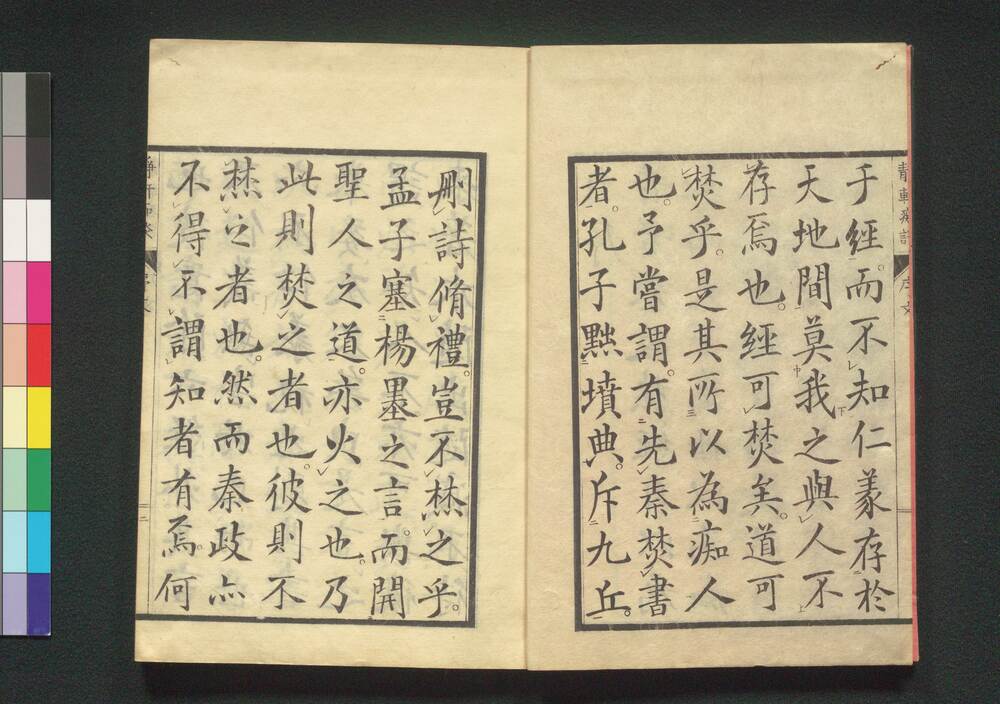 于經。而不知仁義存於
天地間莫我之與人不
存焉也。經可焚矣。道可
焚乎。是其所以為痴人
也。予嘗謂。有先秦焚書
者。孔子黜墳典。斥九丘。
刪詩脩禮。豈不焚之乎。
孟子塞楊墨之言。而開
聖人之道。亦火之也。乃
此則焚之者也。彼則不
焚之者也。然而秦政亦
不得不謂知者有焉。何